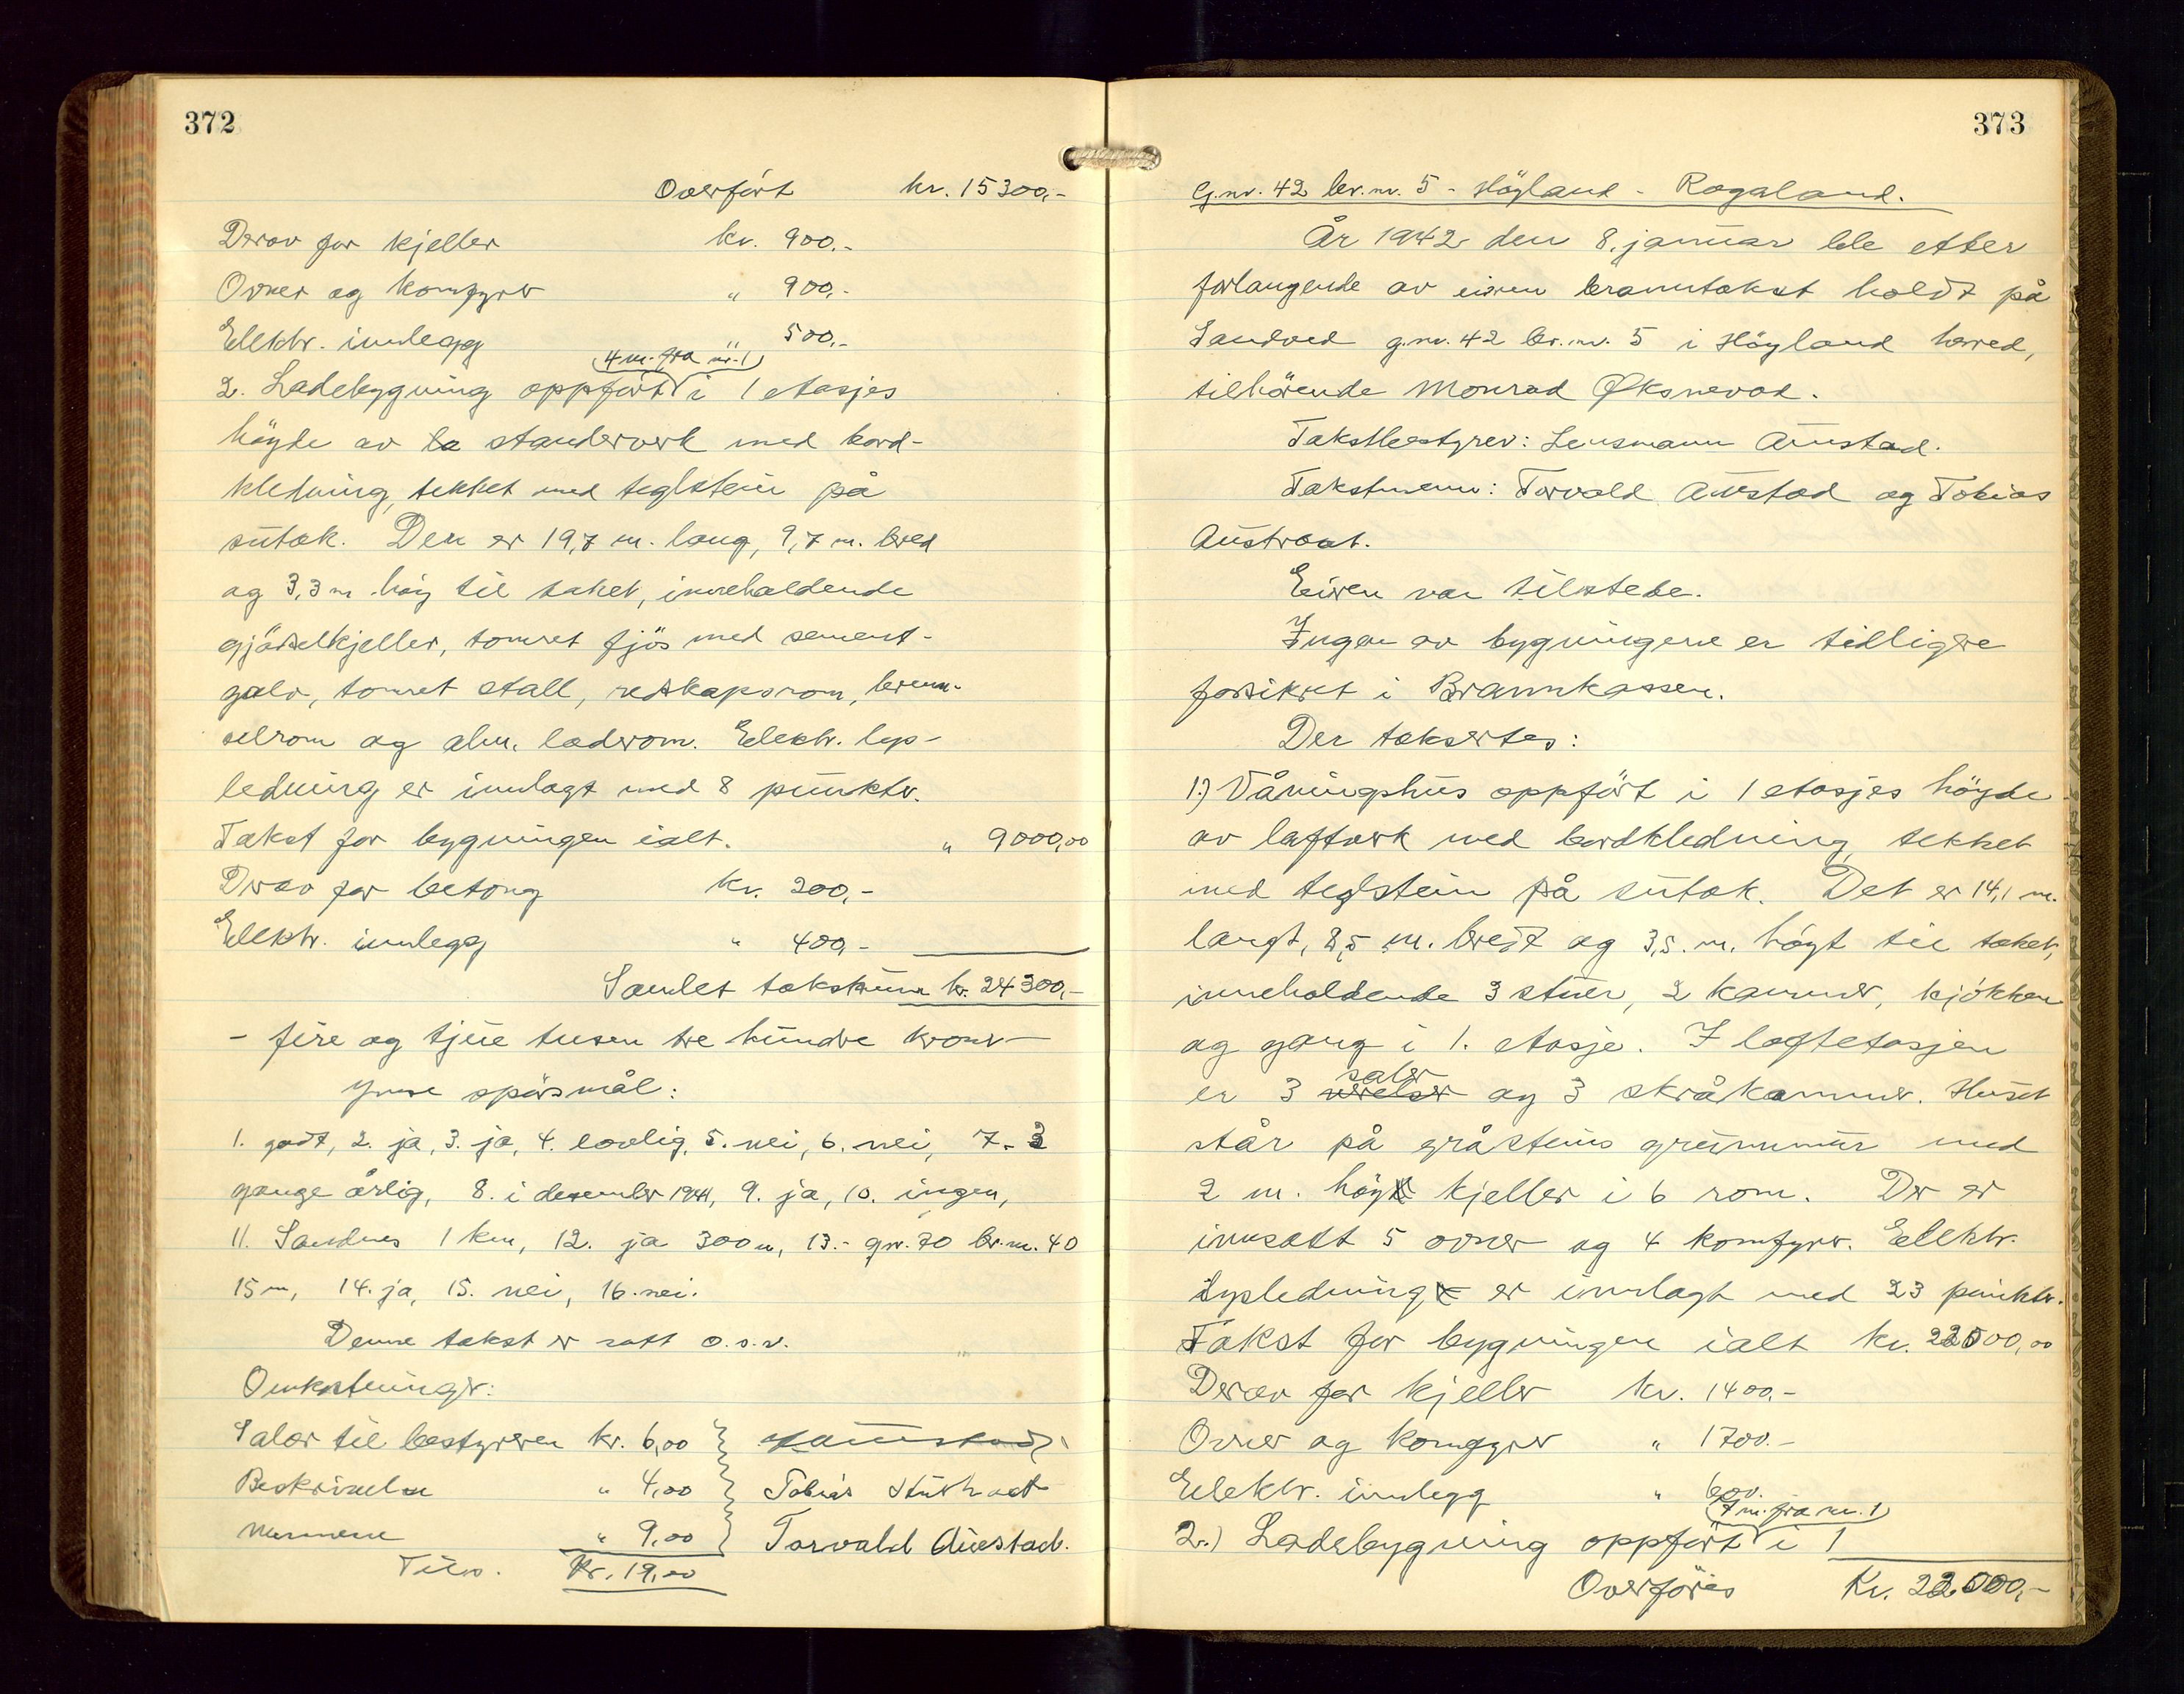 372
Overført kr. 15300,-
Derav for kjeller kr. 900.-
Ovner og komfyrer " 900,-
Elektr. innlegg " 500,-
(4 m. fra nr. 1)
2. Ladebygning oppført i 1 etasjes
høyde av standerverk med bord-
kledning, tekket med teglstein på
sutak. Den er 19,7 m. lang, 9,7 m. bred
og 3,3 m. høy til taket, inneholdende
gjødselkjeller, tomret fjøs med sement-
golv, tomret stall, redskapsrom, bren-
selrom og alm. laderom. Elektr. lys-
ledning er innlagt med 8 punkter.
Takst for bygningen ialt. " 9000,00
Derav for betong kr. 200,-
Elektr. innlegg " 400,-
Samlet takstsum kr. 24300,-
- fire og tjue tusen tre hundre kroner -
Ymse spørsmål:
1. godt, 2. ja, 3. ja, 4. lovlig, 5. nei, 6. nei, 7. 3
gange årlig, 8. i desember 1941, 9. ja, 10. ingen,
11. Sandnes 1 km, 12. ja 300 m, 13.- gnr. 70 br.nr. 40
15 m, 14. ja, 15. nei, 16. nei.
Denne takst er satt o.s.v.
Omkostninger:
Salær til bestyreren kr. 6,00
Beskrivelse " 4,00 Tobias Austraat
Mennene " 9,00 Torvald Auestad.
Tils. Kr. 19,00
373
G.nr. 42 br.nr. 5 - Høyland - Rogaland.
År 1942 den 8. januar ble etter
forlangende av eieren branntakst holdt på
Sandved g.nr. 42 br.nr. 5 i Høyland hered,
tilhørende Monrad Øksnevad.
Takstbestyrer: Lensmann Aurstad.
Takstmenn: Torvald Auestad og Tobias
Austraat.
Eieren var tilstede.
Ingen av bygningene er tidligere
forsikret i Brannkassen.
Der taksertes:
1.) Våningshus oppført i 1 etasjes høyde
av laftverk med bordkledning, tekket
med teglstein på sutak. Det er 14,1 m.
langt, 8,5 m. bredt og 3,5 m. høyt til taket,
inneholdende 3 stuer, 2 kammer, kjøkken
og gang i 1. etasje. I loftetasjen
saler
er 3 værelser og 3 skråkammer. Huset
står på gråsteins grunnmur med
2 m. høy kjeller i 6 rom. Der er
innsatt 5 ovner og 4 komfyrer. Elektr.
lysledning er innlagt med 23 punkter.
Takst for bygningen ialt kr. 22000,00
Derav for kjeller kr. 1400.-
Ovner og komfyrer " 1700.-
Elektr. innlegg " 600.
(7 m. fra nr. 1)
2.) Ladebygning oppført i 1
Overføres Kr. 22000,-